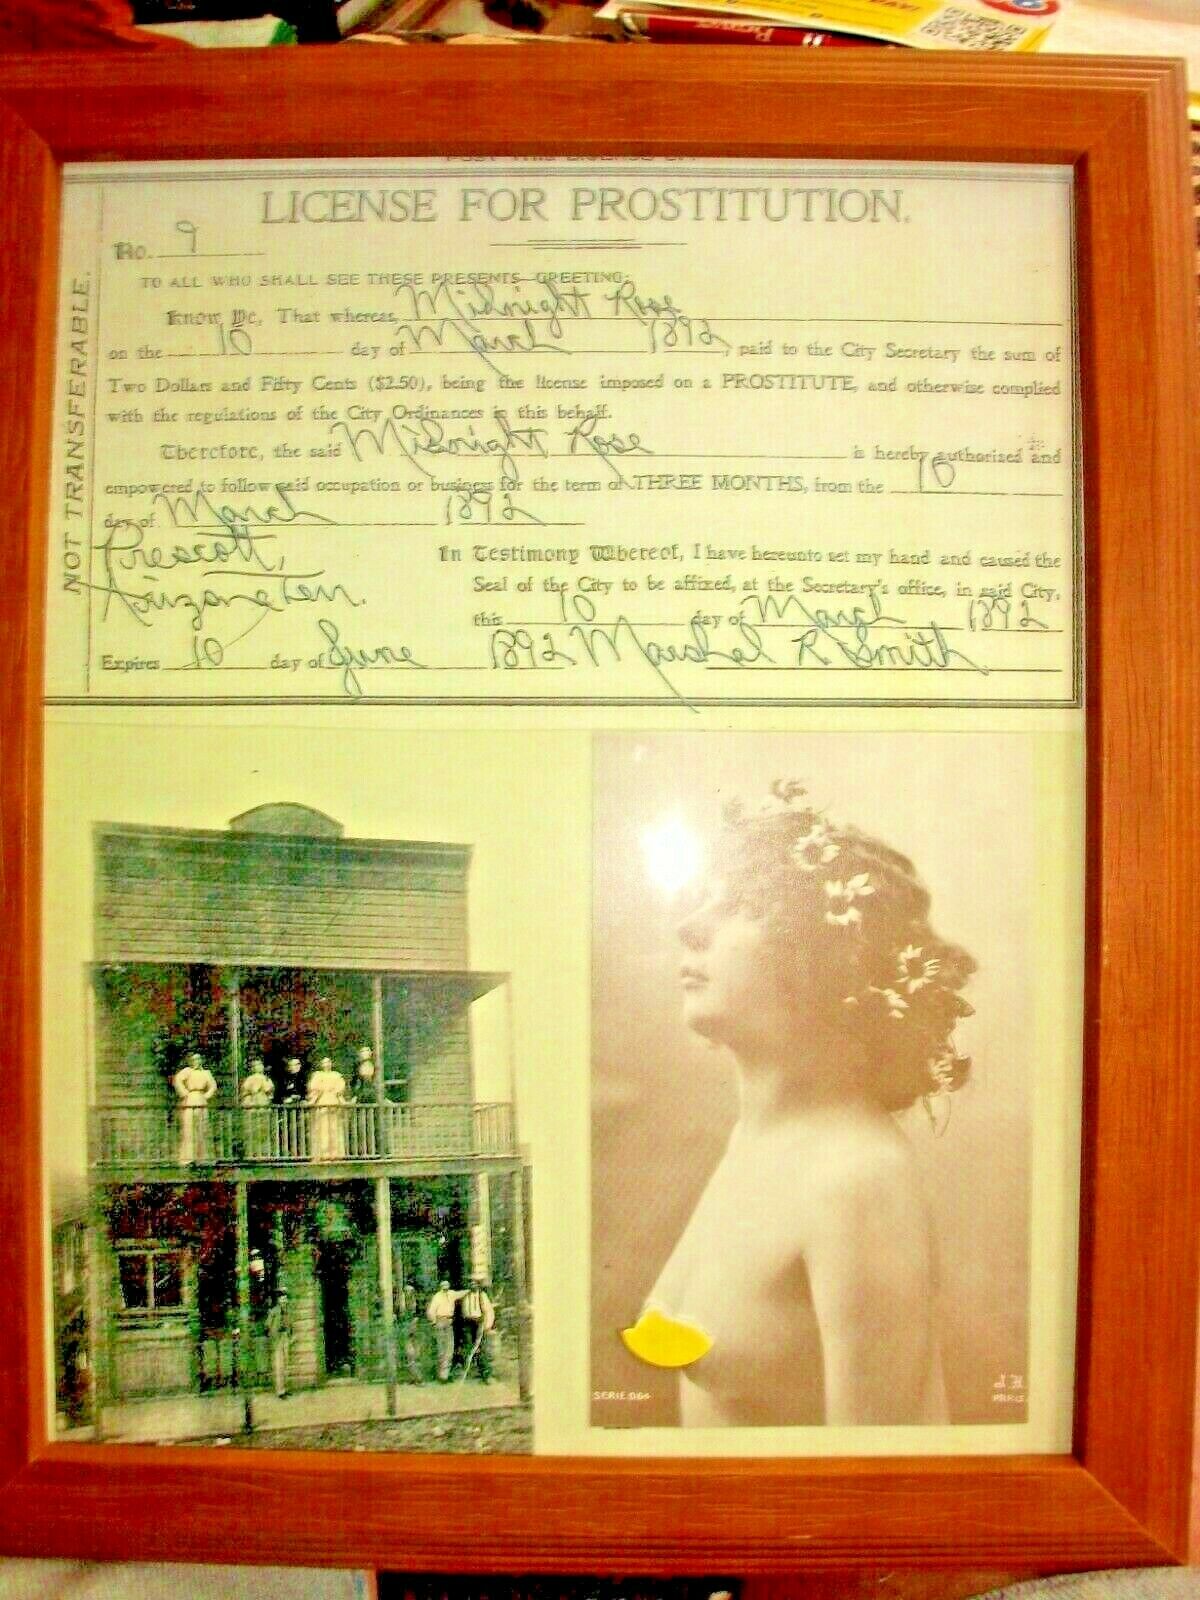 POST THIS LICENSE UP.
LICENSE FOR PROSTITUTION.
No. 9
NOT TRANSFERABLE.
TO ALL WHO SHALL SEE THESE PRESENTS—GREETING:
Know Ye, That whereas, Midnight Rose
on the 10 day of March 1892, paid to the City Secretary the sum of
Two Dollars and Fifty Cents ($2.50), being the license imposed on a PROSTITUTE, and otherwise complied
with the regulations of the City Ordinances in this behalf.
Therefore, the said Midnight Rose is hereby authorized and
empowered to follow said occupation or business for the term of THREE MONTHS, from the 10
day of March 1892
Prescott,
Arizona Terr.
In Testimony Whereof, I have hereunto set my hand and caused the
Seal of the City to be affixed, at the Secretary's office, in said City,
this 10 day of March 1892
Expires 10 day of June 1892 Marshal R Smith
SERIE 064
J.A.
PARIS